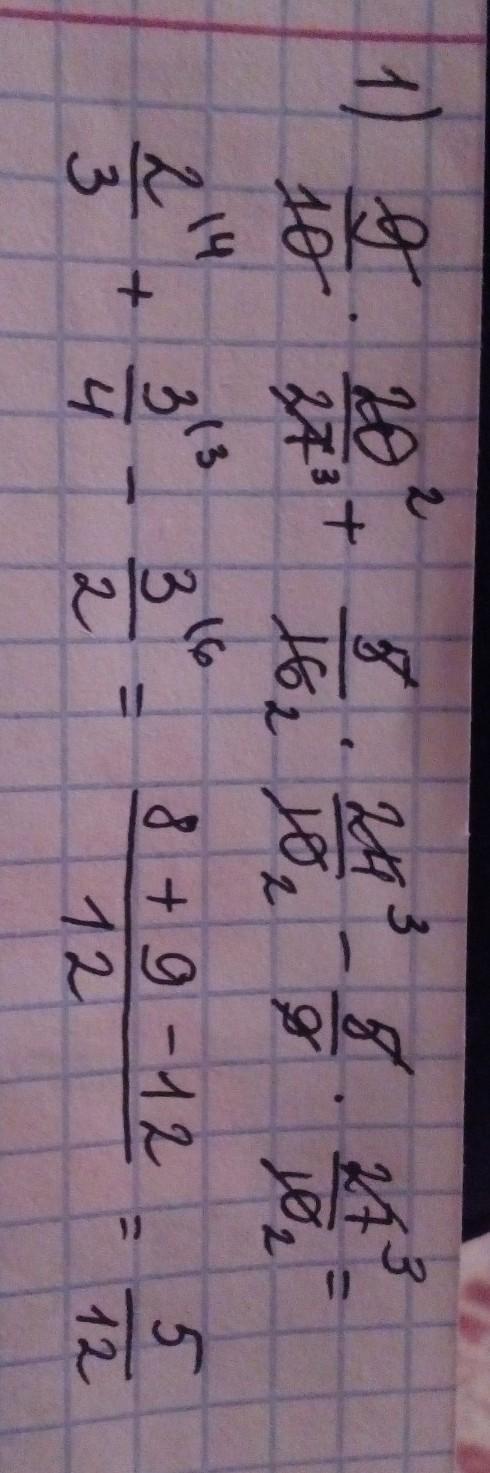 1) 9/10 · 20²/27³ + 5/16₂ · 24³/10₂ − 5/9 · 27³/10₂ =
2\4/3 + 3\3/4 − 3\6/2 = 8 + 9 − 12/12 = 5/12